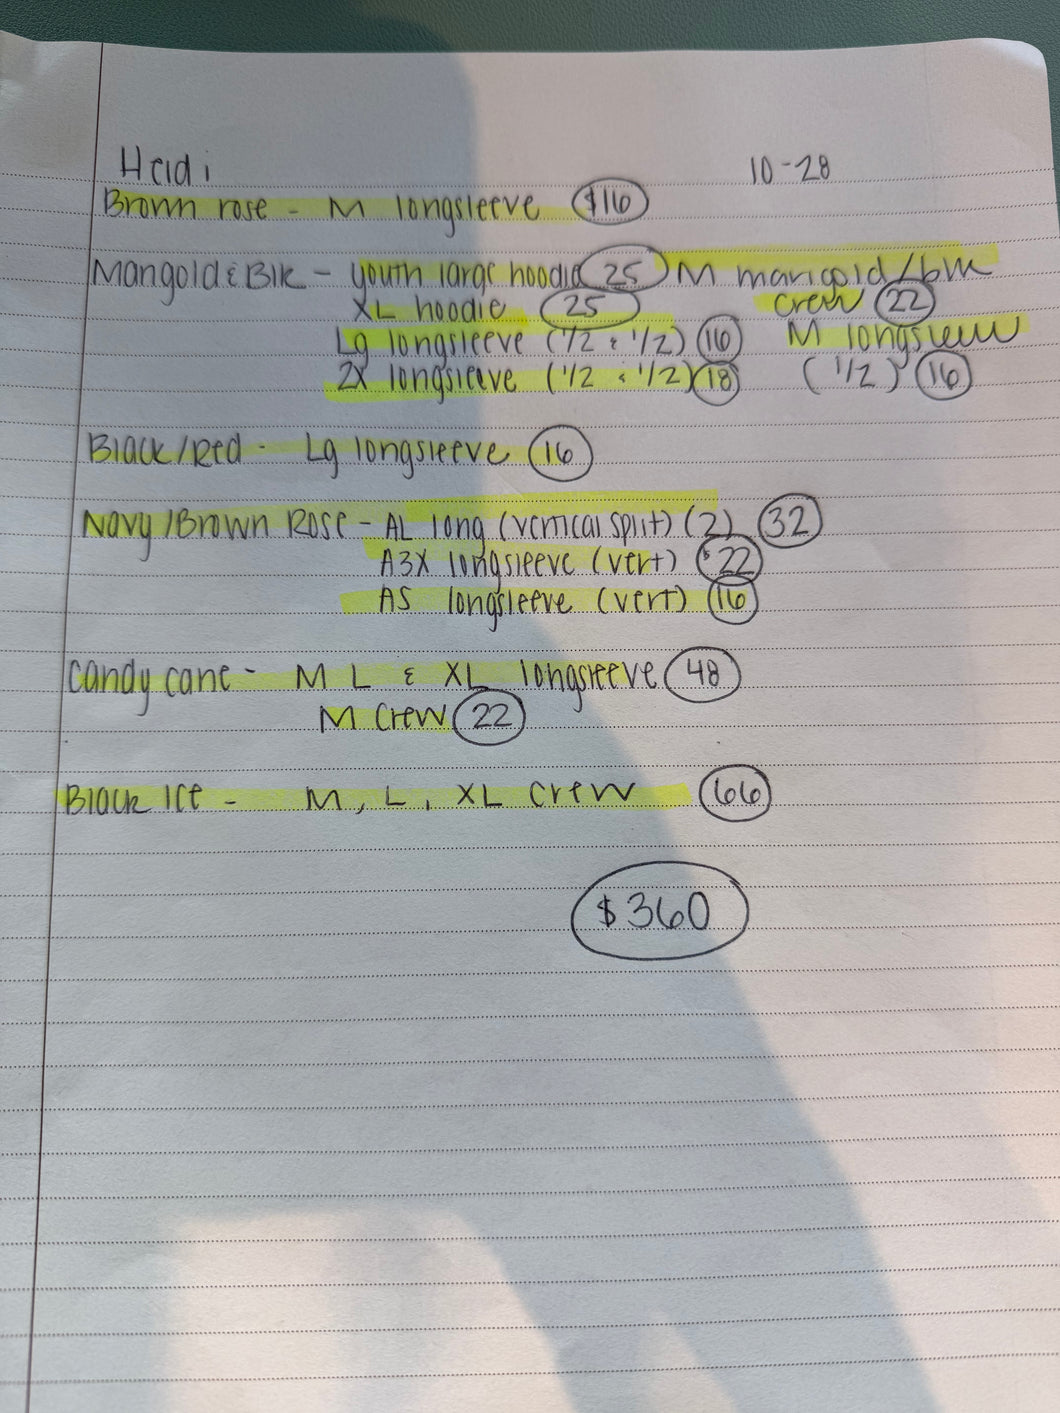 Heidi 10-28
Brown rose - M longsleeve $16
Marigold & Blk - youth large hoodie 25 M marigold/blk
XL hoodie 25 crew 22
Lg longsleeve (1/2 & 1/2) 16 M longsleeve
2X longsleeve (1/2 & 1/2) 18 (1/2) 16
Black/Red - Lg longsleeve 16
Navy/Brown Rose - AL long (vertical split) (2) 32
A3X longsleeve (vert) $22
AS longsleeve (vert) 16
Candy cane - M L & XL longsleeve 48
M Crew 22
Black Ice - M, L, XL crew 66
$360